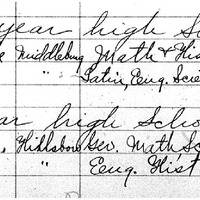 year high S
Middleburg Math & His
" Latin, Eng. Scie
ar high Scho
, Hillsboro Ger. Math Sc
" Eng. Hist